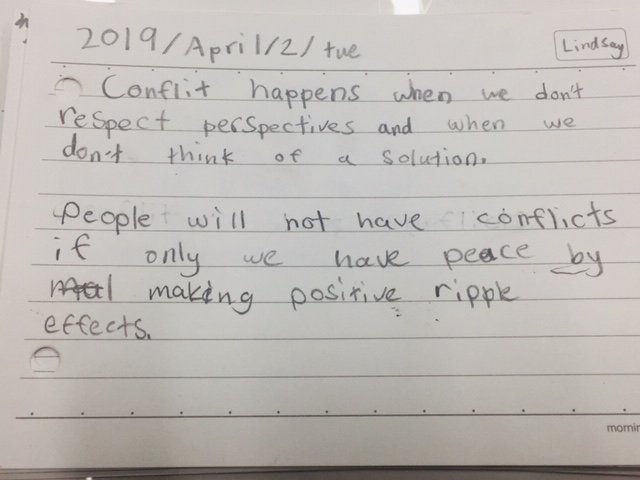 2019/April/2/tue
Lindsay
Conflit happens when we don't
respect perspectives and when we
don't think of a solution.
People will not have conflicts
if only we have peace by
making positive ripple
effects.